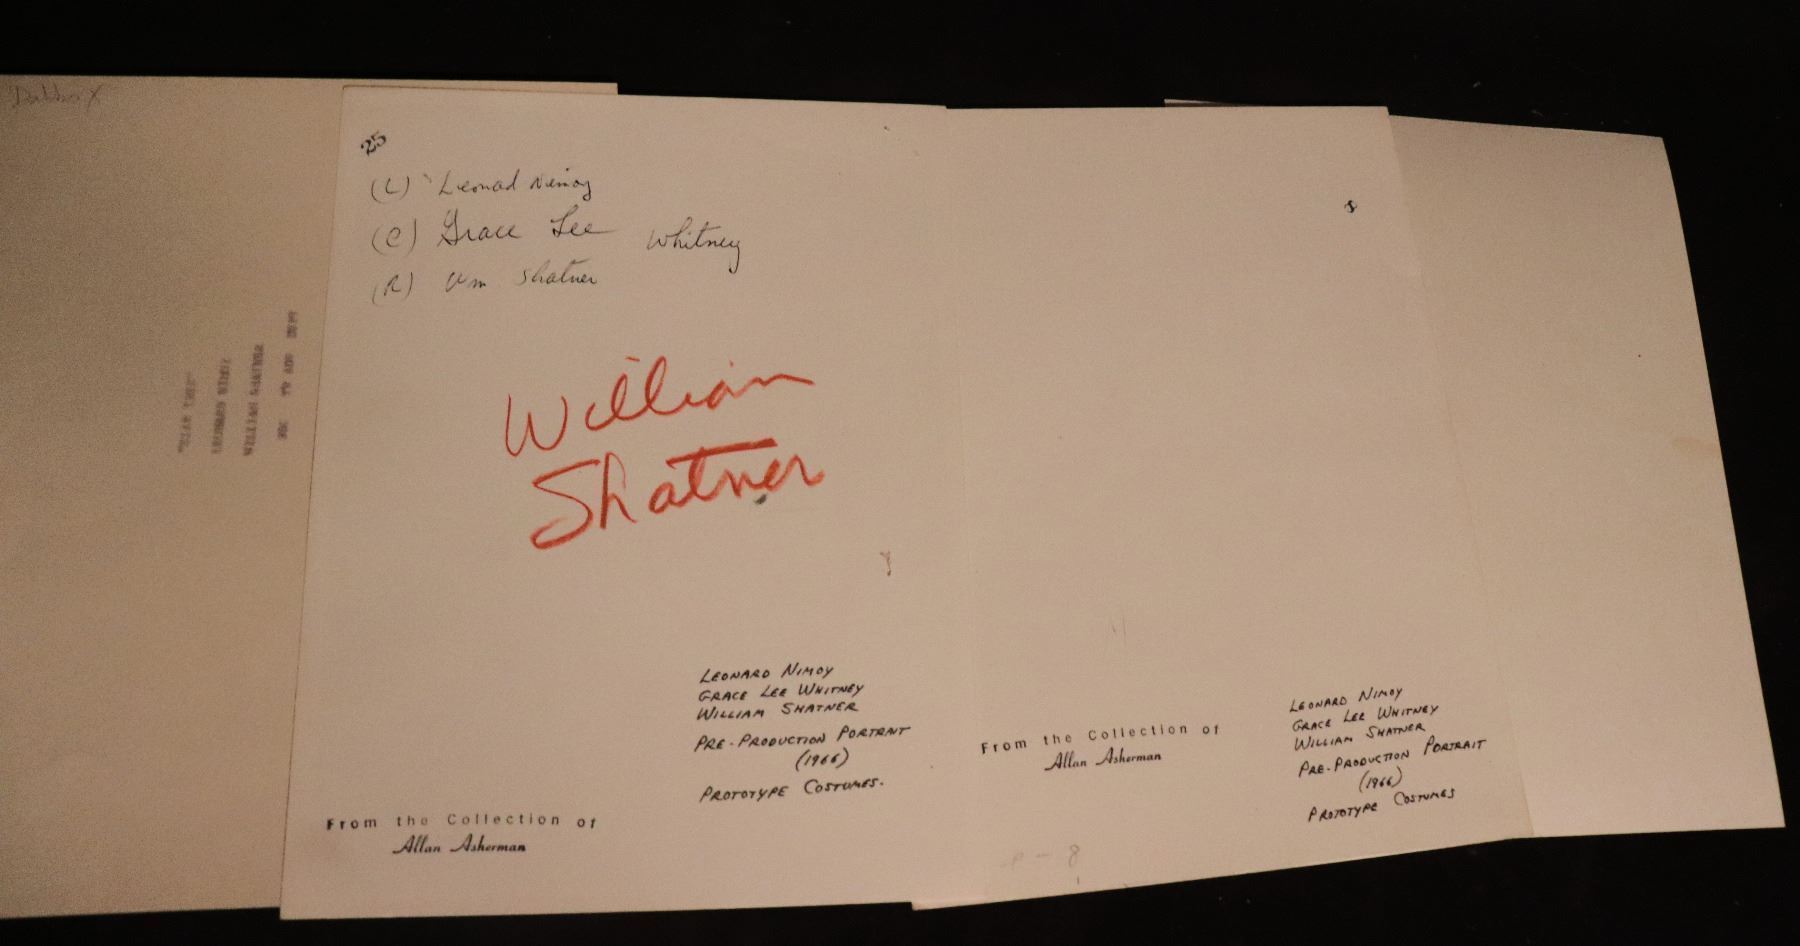 25
(L) Leonad Nimoy
(C) Grace Lee Whitney
(R) Wm Shatner
William
Shatner
LEONARD NIMOY
GRACE LEE WHITNEY
WILLIAM SHATNER
PRE-PRODUCTION PORTRAIT
(1966)
PROTOTYPE COSTUMES.
From the Collection of
Allan Asherman
8
From the Collection of
Allan Asherman
LEONARD NIMOY
GRACE LEE WHITNEY
WILLIAM SHATNER
PRE-PRODUCTION PORTRAIT
(1966)
PROTOTYPE COSTUMES
P-8
"STAR TREK"
LEONARD NIMOY
WILLIAM SHATNER